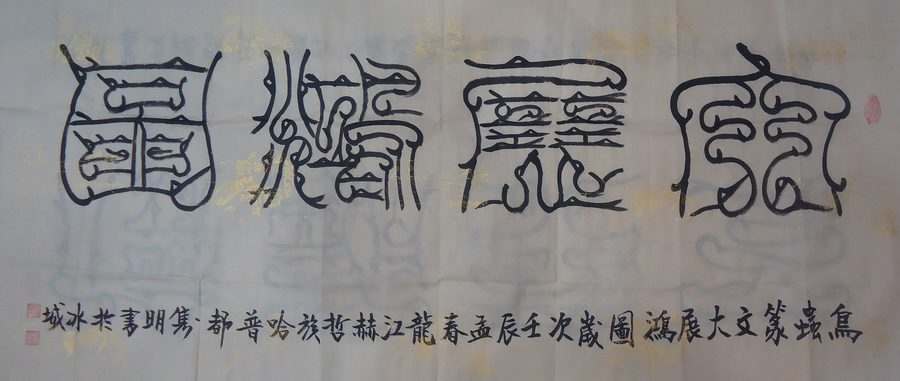 大展鴻圖
鳥蟲篆文大展鴻圖歲次壬辰孟春龍江赫哲族哈普都·隽明書於冰城